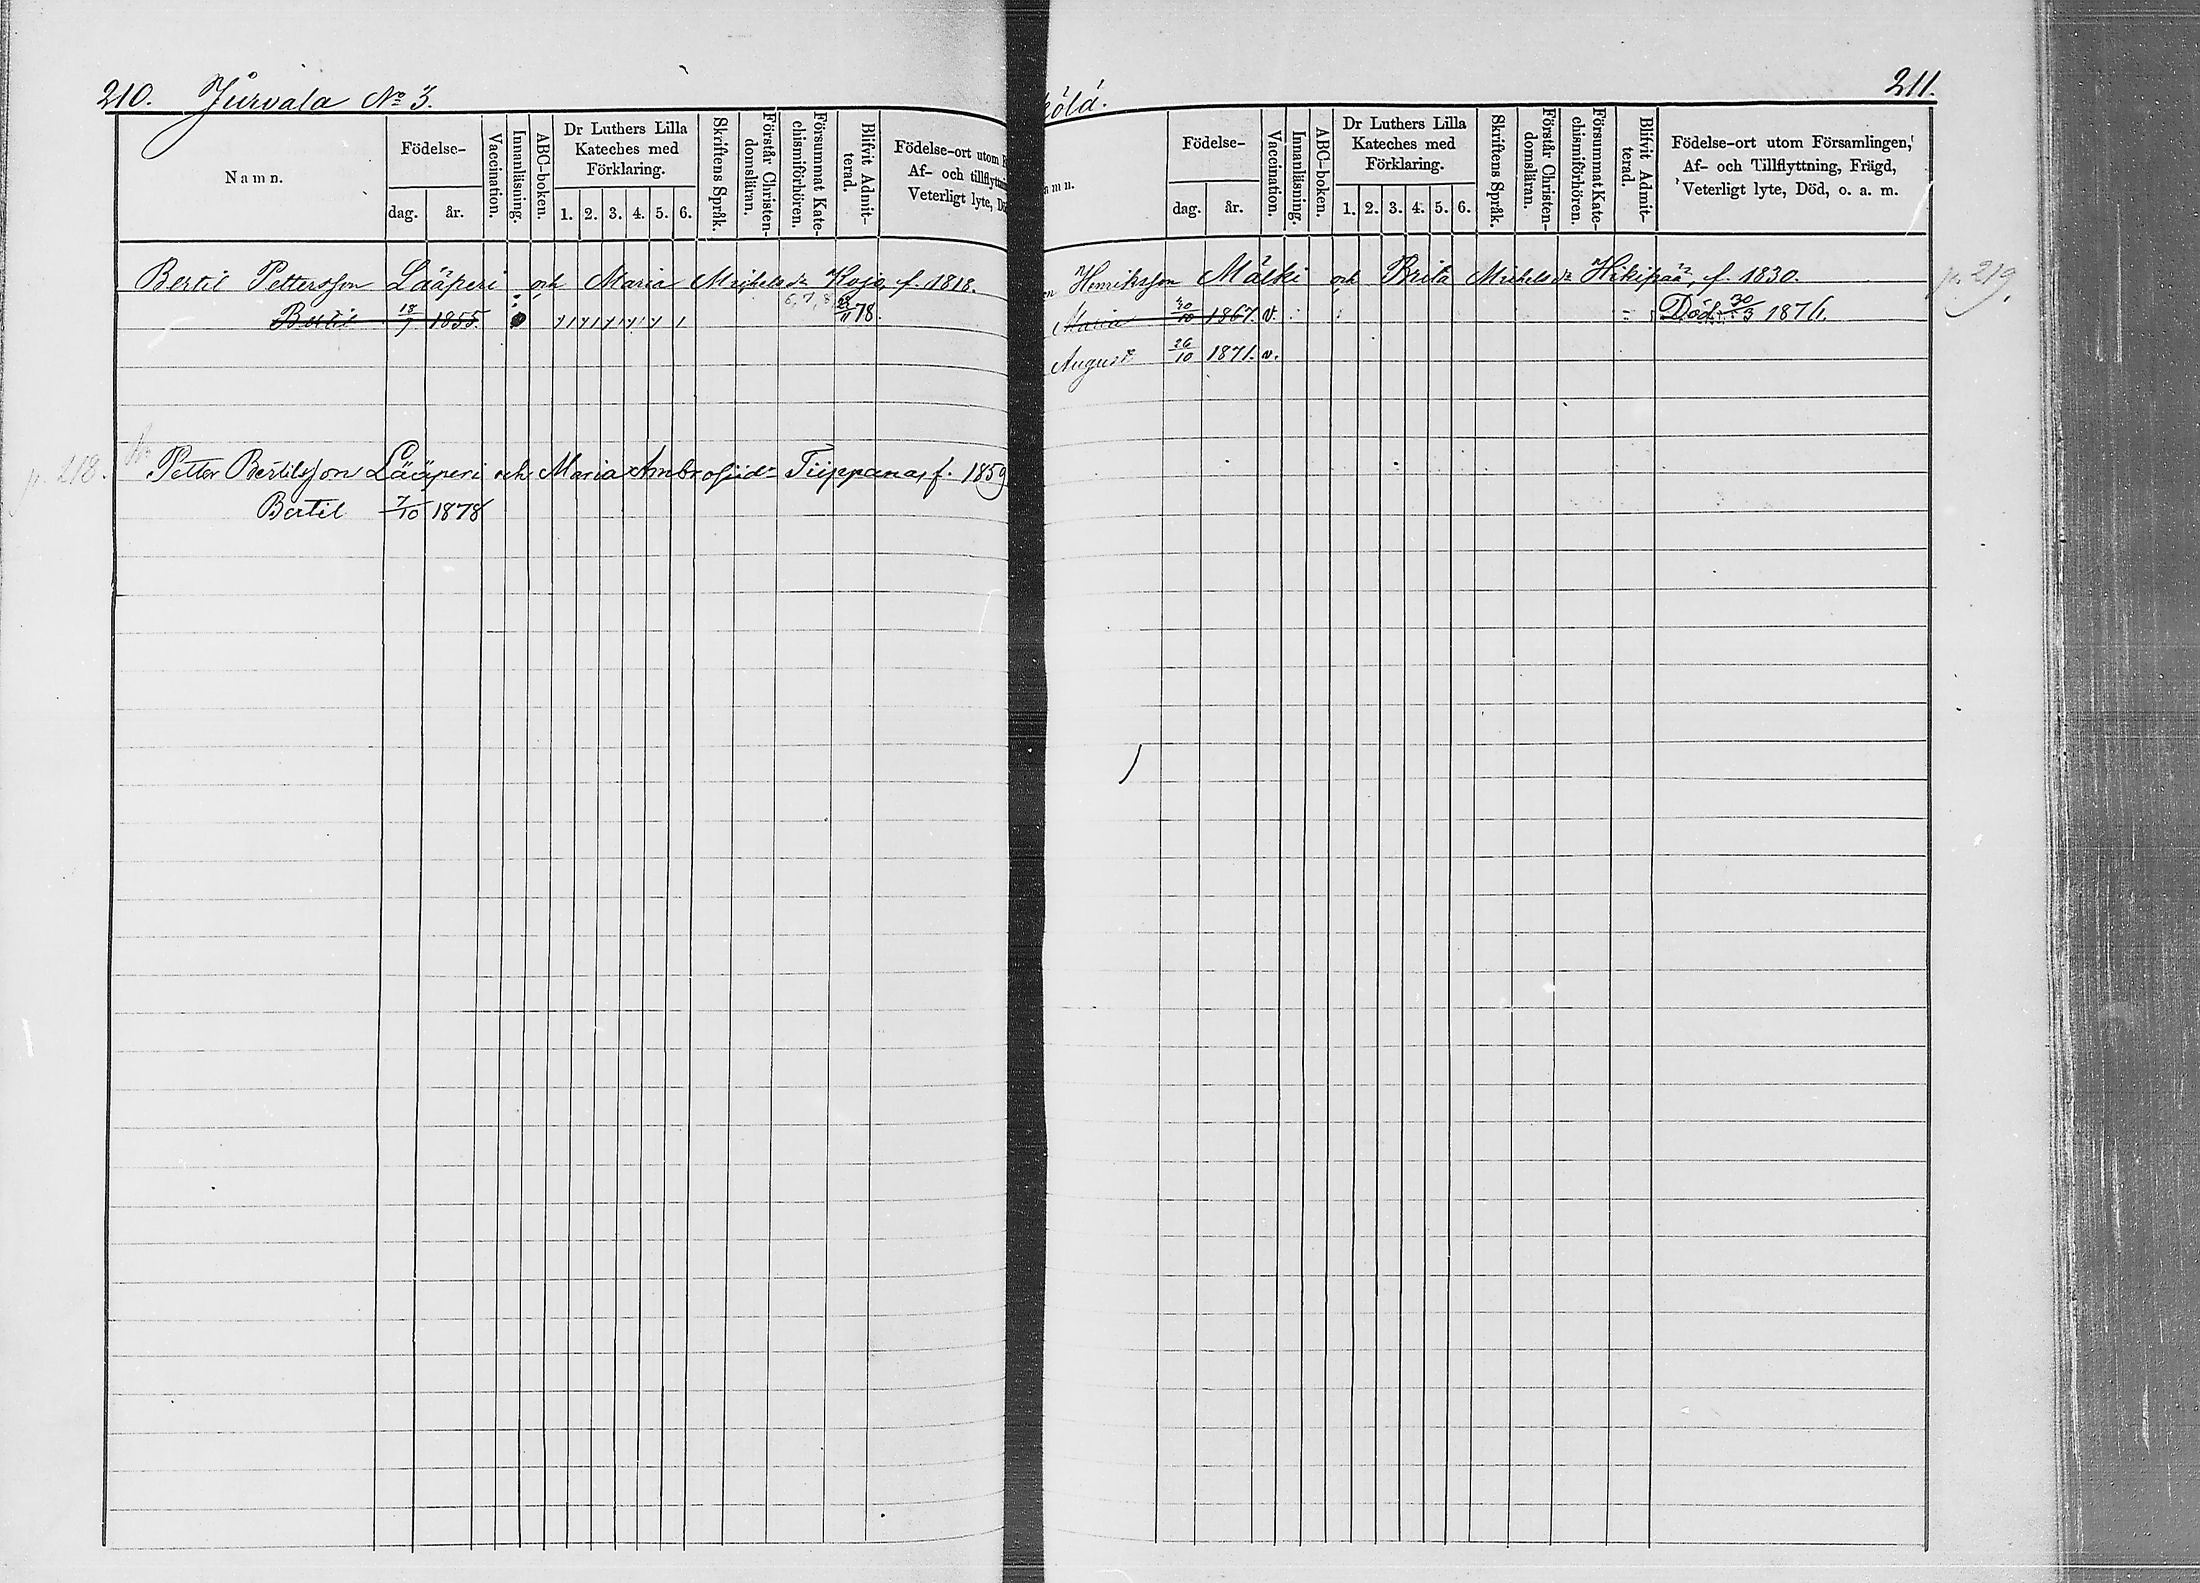 210. Jurvala No 3.
Namn.
Födelse-
dag. år.
Vaccination.
Innanläsning.
ABC-boken.
Dr Luthers Lilla
Kateches med
Förklaring.
1. 2. 3. 4. 5. 6.
Skriftens Språk.
Förstår Christen-
domsläran.
Försummat Kate-
chismiförhören.
Blifvit Admit-
terad.
Födelse-ort utom
Af- och tillflyttn
Veterligt lyte, D
Bertil Pettersson Lääperi och Maria Michelsdr Kojo, f. 1818.
Bertil 1855. 6, 7, 8 78.
p. 218. Petter Bertilsson Lääperi och Maria Ambrosiidr Tiippana, f. 1859
Bertil 7/10 1878
211.
kölä.
amn.
Födelse-
dag. år.
Vaccination.
Innanläsning.
ABC-boken.
Dr Luthers Lilla
Kateches med
Förklaring.
1. 2. 3. 4. 5. 6.
Skriftens Språk.
Förstår Christen-
domsläran.
Försummat Kate-
chismiförhören.
Blifvit Admit-
terad.
Födelse-ort utom Församlingen,
Af- och Tillflyttning, Frägd,
Veterligt lyte, Död, o. a. m.
on Henriksson Mälki och Brita Michelsdr Hikipää, f. 1830. p. 219.
Maria 30/10 1867. v. Död 30/3 1871.
August 26/10 1871. v.